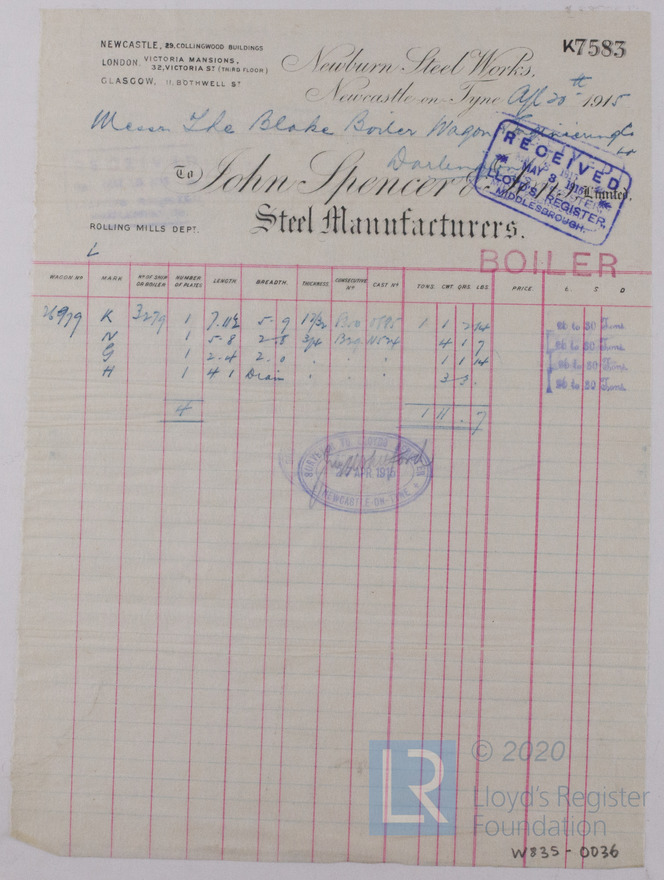 NEWCASTLE, 29, COLLINGWOOD BUILDINGS
LONDON, VICTORIA MANSIONS,
32, VICTORIA ST (THIRD FLOOR)
GLASGOW, 11, BOTHWELL ST
K7583
Newburn Steel Works,
Newcastle-on-Tyne Apl 20th 1915
Messrs The Blake Boiler Wagon & Engineering Co
Darlington
RECEIVED
MAY 3 1915
LLOYD'S REGISTER,
MIDDLESBROUGH.
To John Spencer & Sons, Limited,
Steel Manufacturers.
ROLLING MILLS DEPT.
L
BOILER
WAGON Nº MARK Nº OF SHIP OR BOILER NUMBER OF PLATES LENGTH BREADTH. THICKNESS CONSECUTIVE Nº CAST Nº TONS. CWT. QRS. LBS. PRICE. £ S D
26979 K 3279 1 7.11½ 5-9 1 1 2 14 26 to 30 Tons.
N 1 5-8 2-8 3/4 4 1 7 26 to 30 Tons.
G 1 2-4 2.0 " " 1 1 14 26 to 30 Tons.
H 1 4 1 Diam " " 3 3 . 26 to 30 Tons.
4 1 11 . 7
SURVEYOR TO LLOYDS REGISTER
APR. 1915
NEWCASTLE-ON-TYNE
LR
© 2020
Lloyd's Register
Foundation
W835-0036